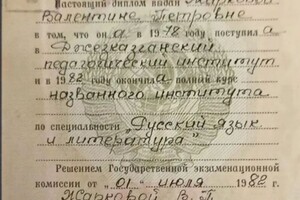 Настоящий диплом выдан Жарковой
Валентине Петровне
в том, что он а в 1978 году поступил а
в Джезказганский
педагогический институт
и в 1982 году окончил а полный курс
названного института
по специальности „Русский язык
и литература"
Решением Государственной экзаменационной
комиссии от „01" июля 1982 г.
Жарковой В. П.